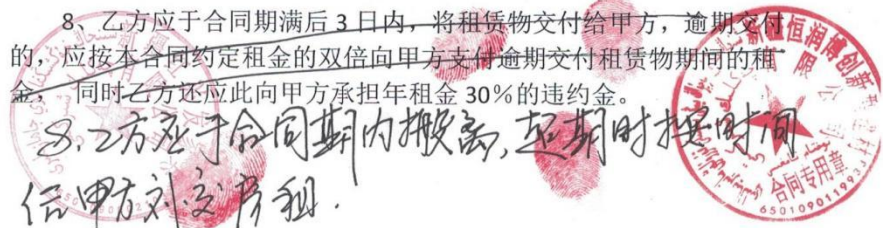 8、乙方应于合同期满后 3 日内，将租赁物交付给甲方，逾期交付
的，应按本合同约定租金的双倍向甲方支付逾期交付租赁物期间的租
金， 同时乙方还应此向甲方承担年租金 30%的违约金。
8.乙方应于合同期内搬离,超期时按实时间
给甲方补交房租.
恒润博创新
限公司
合同专用章
650109011993